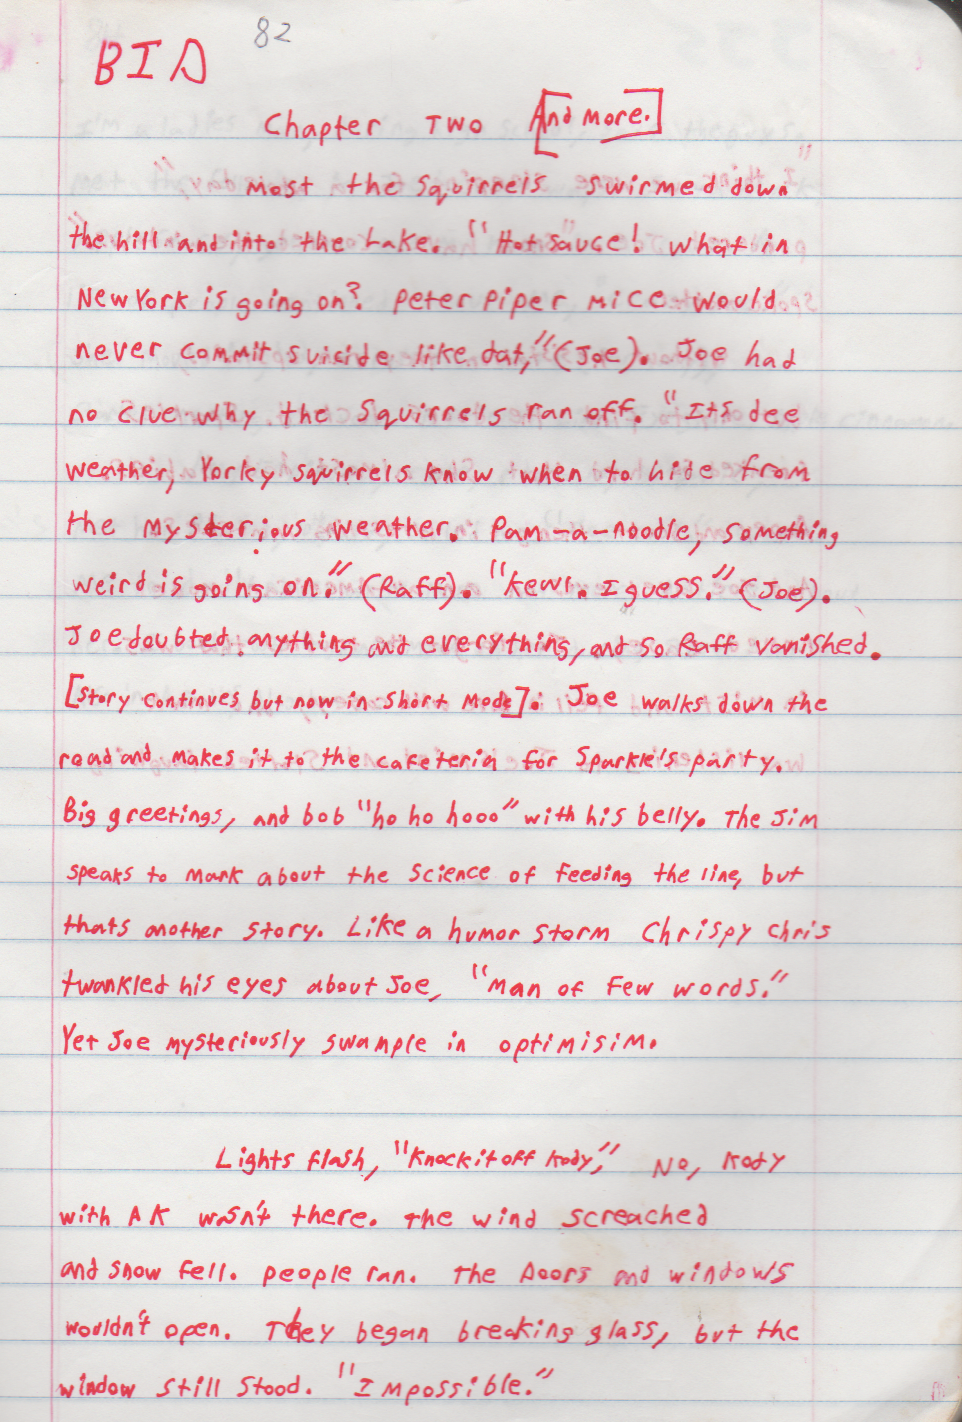 82
BIA
Chapter Two [And more.]
Most the squirrels swirmed down
the hill and into the Lake. "Hot sauce! What in
New York is going on? Peter Piper Mice would
never commit suicide like dat," (Joe). Joe had
no clue why the squirrels ran off. "Its dee
weather, Yorky squirrels know when to hide from
the mysterious weather. Pam-a-noodle, something
weird is going on." (Raff). "Kewl. I guess." (Joe).
Joe doubted anything and everything, and so Raff vanished.
[Story continues but now in short mode]: Joe walks down the
road and makes it to the cafeteria for Sparkle's party.
Big greetings, and bob "ho ho hooo" with his belly. The Jim
speaks to Mark about the science of feeding the line, but
thats another story. Like a humor storm Chrispy Chris
twankled his eyes about Joe, "Man of few words."
Yet Joe mysteriously swample in optimisim.
Lights flash, "Knock it off Kody," No, Kody
with AK wasn't there. The wind screached
and snow fell. People ran. The doors and windows
wouldn't open. They began breaking glass, but the
window still stood. "Impossible."